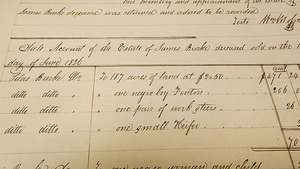 this Inventory and appraisement of the estate of
James Burke deceased was returned and ordered to be recorded
Teste Wm
Sale Account of the Estate of James Burke deceased sold on the 1
day of June 1826
Burke Dr To 117 acres of land at $2.30 271
ditto ditto " one negro boy Fenton 206
ditto ditto " one pair of work steers 26
ditto ditto " one small Heifer
70
To one negro woman and child